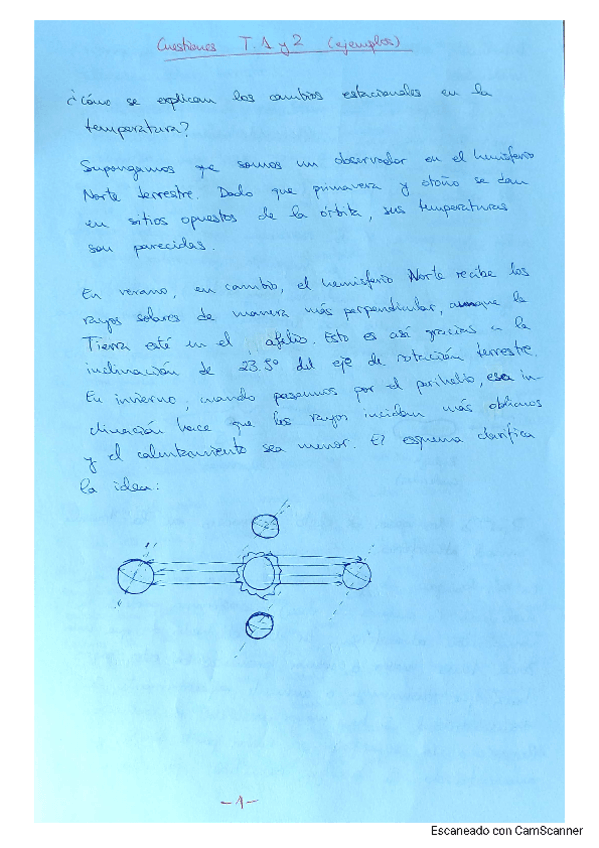 Cuestiones T.1 y 2 (ejemplos)
¿Cómo se explican los cambios estacionales en la
temperatura?
Supongamos que somos un observador en el hemisferio
Norte terrestre. Dado que primavera y otoño se dan
en sitios opuestos de la órbita, sus temperaturas
son parecidas.
En verano, en cambio, el hemisferio Norte recibe los
rayos solares de manera más perpendicular, aunque la
Tierra esté en el afelio. Esto es así gracias a la
inclinación de 23.5º del eje de rotación terrestre.
En invierno, cuando pasamos por el perihelio, esa in-
clinación hace que los rayos incidan más oblicuos
y el calentamiento sea menor. El esquema clarifica
la idea:
-1-
Escaneado con CamScanner